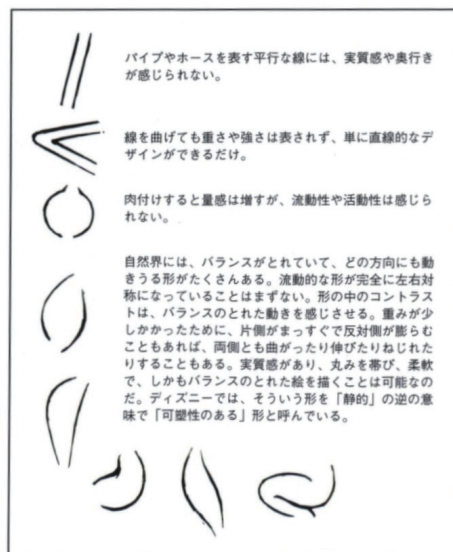 パイプやホースを表す平行な線には、実質感や奥行き
が感じられない。
線を曲げても重さや強さは表されず、単に直線的なデ
ザインができるだけ。
肉付けすると量感は増すが、流動性や活動性は感じら
れない。
自然界には、バランスがとれていて、どの方向にも動
きうる形がたくさんある。流動的な形が完全に左右対
称になっていることはまずない。形の中のコントラス
トは、バランスのとれた動きを感じさせる。重みが少
しかかったために、片側がまっすぐで反対側が膨らむ
こともあれば、両側とも曲がったり伸びたりねじれた
りすることもある。実質感があり、丸みを帯び、柔軟
で、しかもバランスのとれた絵を描くことは可能なの
だ。ディズニーでは、そういう形を「静的」の逆の意
味で「可塑性のある」形と呼んでいる。